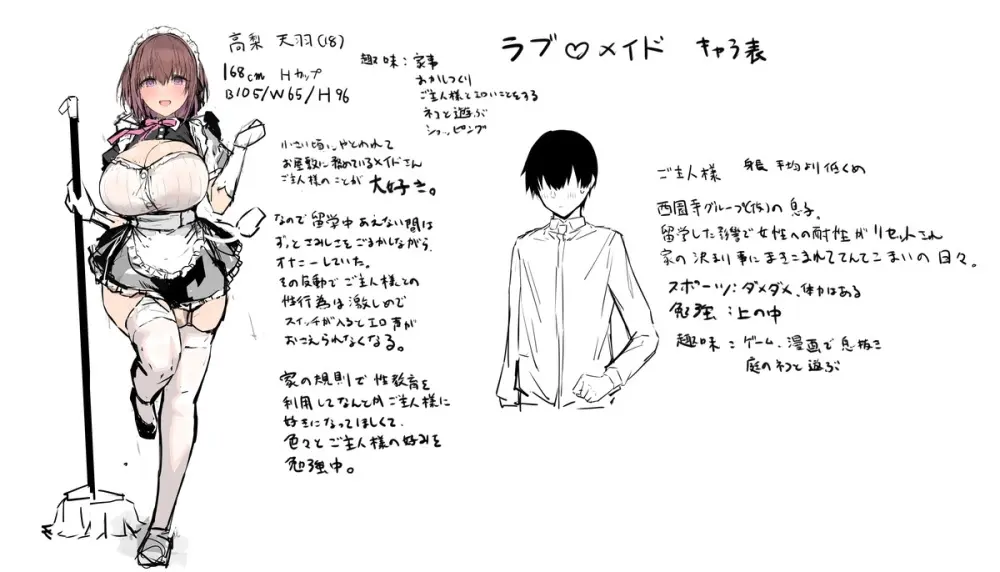 ラブ♡メイド キャラ表
高梨 天羽(18)
168cm Hカップ
B105/W65/H96
趣味：家事
おかしつくり
ご主人様とエロいことをする
ネコと遊ぶ
ショッピング
小さい頃にやとわれて
お屋敷に務めているメイドさん
ご主人様のことが 大好き。
なので留学中あえない間は
ずっとさみしさをごまかしながら、
オナニーしていた。
その反動でご主人様との
性行為は激しめで
スイッチが入るとエロ声が
おさえられなくなる。
家の規則で性教育を
利用してなんとかご主人様に
好きになってほしくて、
色々とご主人様の好みを
勉強中。
ご主人様 身長 平均より低くめ
西園寺グループ(仮)の息子。
留学した影響で女性への耐性がリセットされ
家の決まり事にまきこまれててんてこまいの日々。
スポーツ：ダメダメ、体力はある
勉強：上の中
趣味：ゲーム、漫画で息抜き
庭のネコと遊ぶ